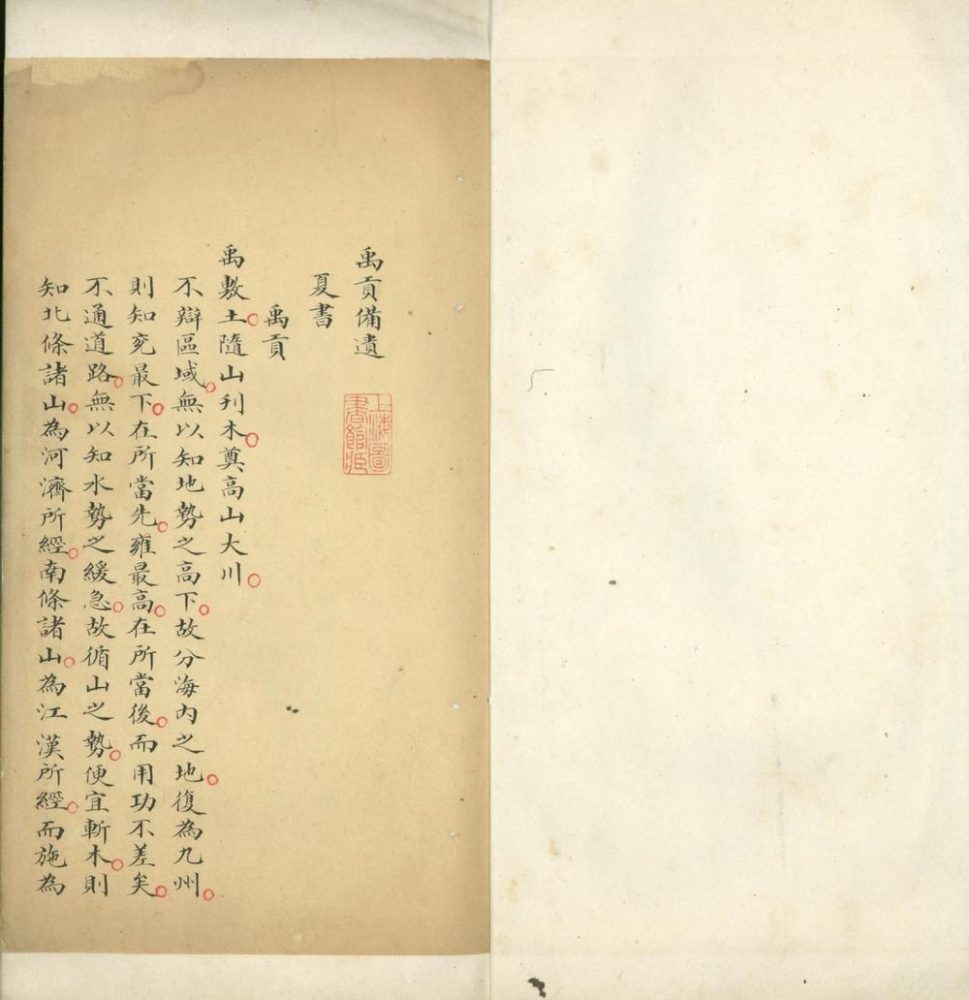 禹貢備遺
上海圖書館藏
夏書
禹貢
禹敷土隨山刋木奠高山大川
不辯區域無以知地勢之高下故分海內之地復為九州
則知兗最下在所當先雍最高在所當後而用功不差矣
不通道路無以知水勢之緩急故循山之勢便宜斬木則
知北條諸山為河濟所經南條諸山為江漢所經而施為